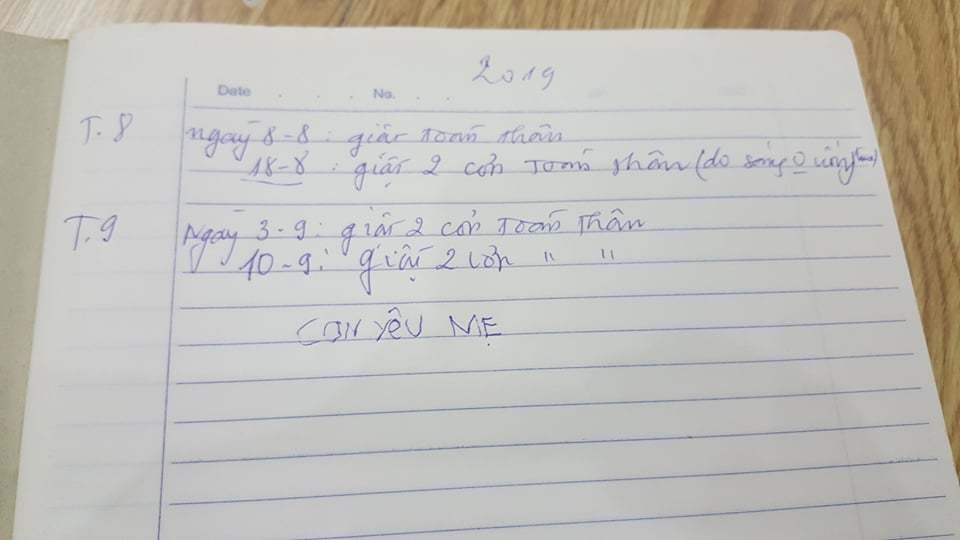 2019
Date . . . No. . .
T.8 ngày 8-8: giật toàn thân
18-8: giật 2 cơn toàn thân (do sáng 0 uống)
T.9 Ngày 3-9: giật 2 cơn toàn thân
10-9: giật 2 cơn " "
CON YÊU MẸ